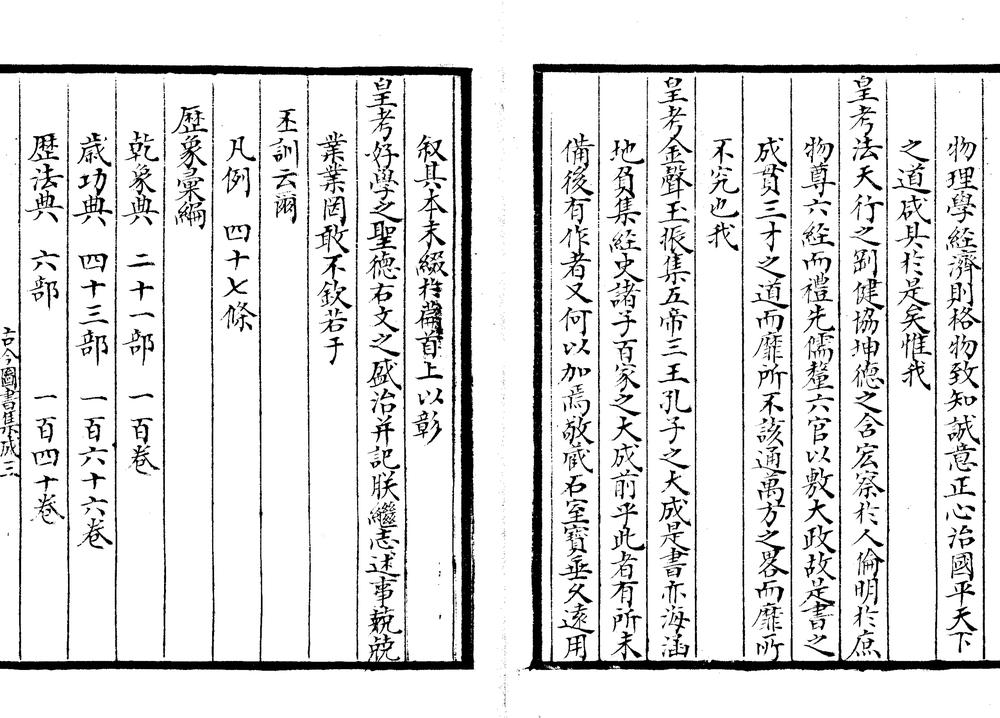 物理學經濟則格物致知誠意正心治國平天下
之道咸具於是矣惟我
皇考法天行之剛健協坤德之含宏察於人倫明於庶
物尊六經而禮先儒釐六官以敷大政故是書之
成貫三才之道而靡所不該通萬方之畧而靡所
不究也我
皇考金聲玉振集五帝三王孔子之大成是書亦海涵
地負集經史諸子百家之大成前乎此者有所未
備後有作者又何以加焉敬藏石室寶垂久遠用
叙其本末綴於篇首上以彰
皇考好學之聖德右文之盛治并記朕繼志述事兢兢
業業罔敢不欽若于
丕訓云爾
凡例 四十七條
歷象彙編
乾象典 二十一部 一百卷
歲功典 四十三部 一百六十六卷
歷法典 六部 一百四十卷
古今圖書集成 三